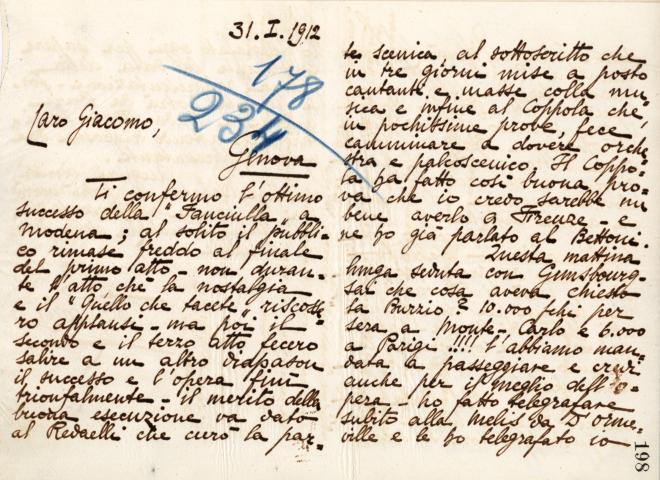 31.I.1912
178
234
Caro Giacomo,
Genova
Ti confermo l'ottimo
successo della "Fanciulla" a
Modena; al solito il pubbli=
co rimase freddo al finale
del primo atto - non duran=
te l'atto chè la nostalgia
e il "Quello che tacete" riscosse=
ro applausi - ma poi il
secondo e il terzo atto fecero
salire a un altro diapason
il successo e l'opera finì
trionfalmente - il merito della
buona esecuzione va dato
al Redaelli che curò la par=
te scenica, al sottoscritto che
in tre giorni mise a posto
cantanti e masse colla mu=
sica e infine al Coppola che,
in pochissime prove, fece
camminare a dovere orche=
stra e palcoscenico. Il Coppo=
la ha fatto così buona pro=
va che io credo sarebbe
bene averlo a Firenze - e
ne ho già parlato al Bettoni.
Questa mattina
lunga seduta con Gunsbourg -
sai che cosa aveva chiesto
la Burzio? 10.000 fchi per
sera a Monte-Carlo e 6.000
a Parigi !!!! l'abbiamo man=
data a passeggiare e
anche per il meglio dell'o=
pera - ho fatto telegrafare
subito alla Melis da D'Orme=
ville e le ho telegrafato io
198